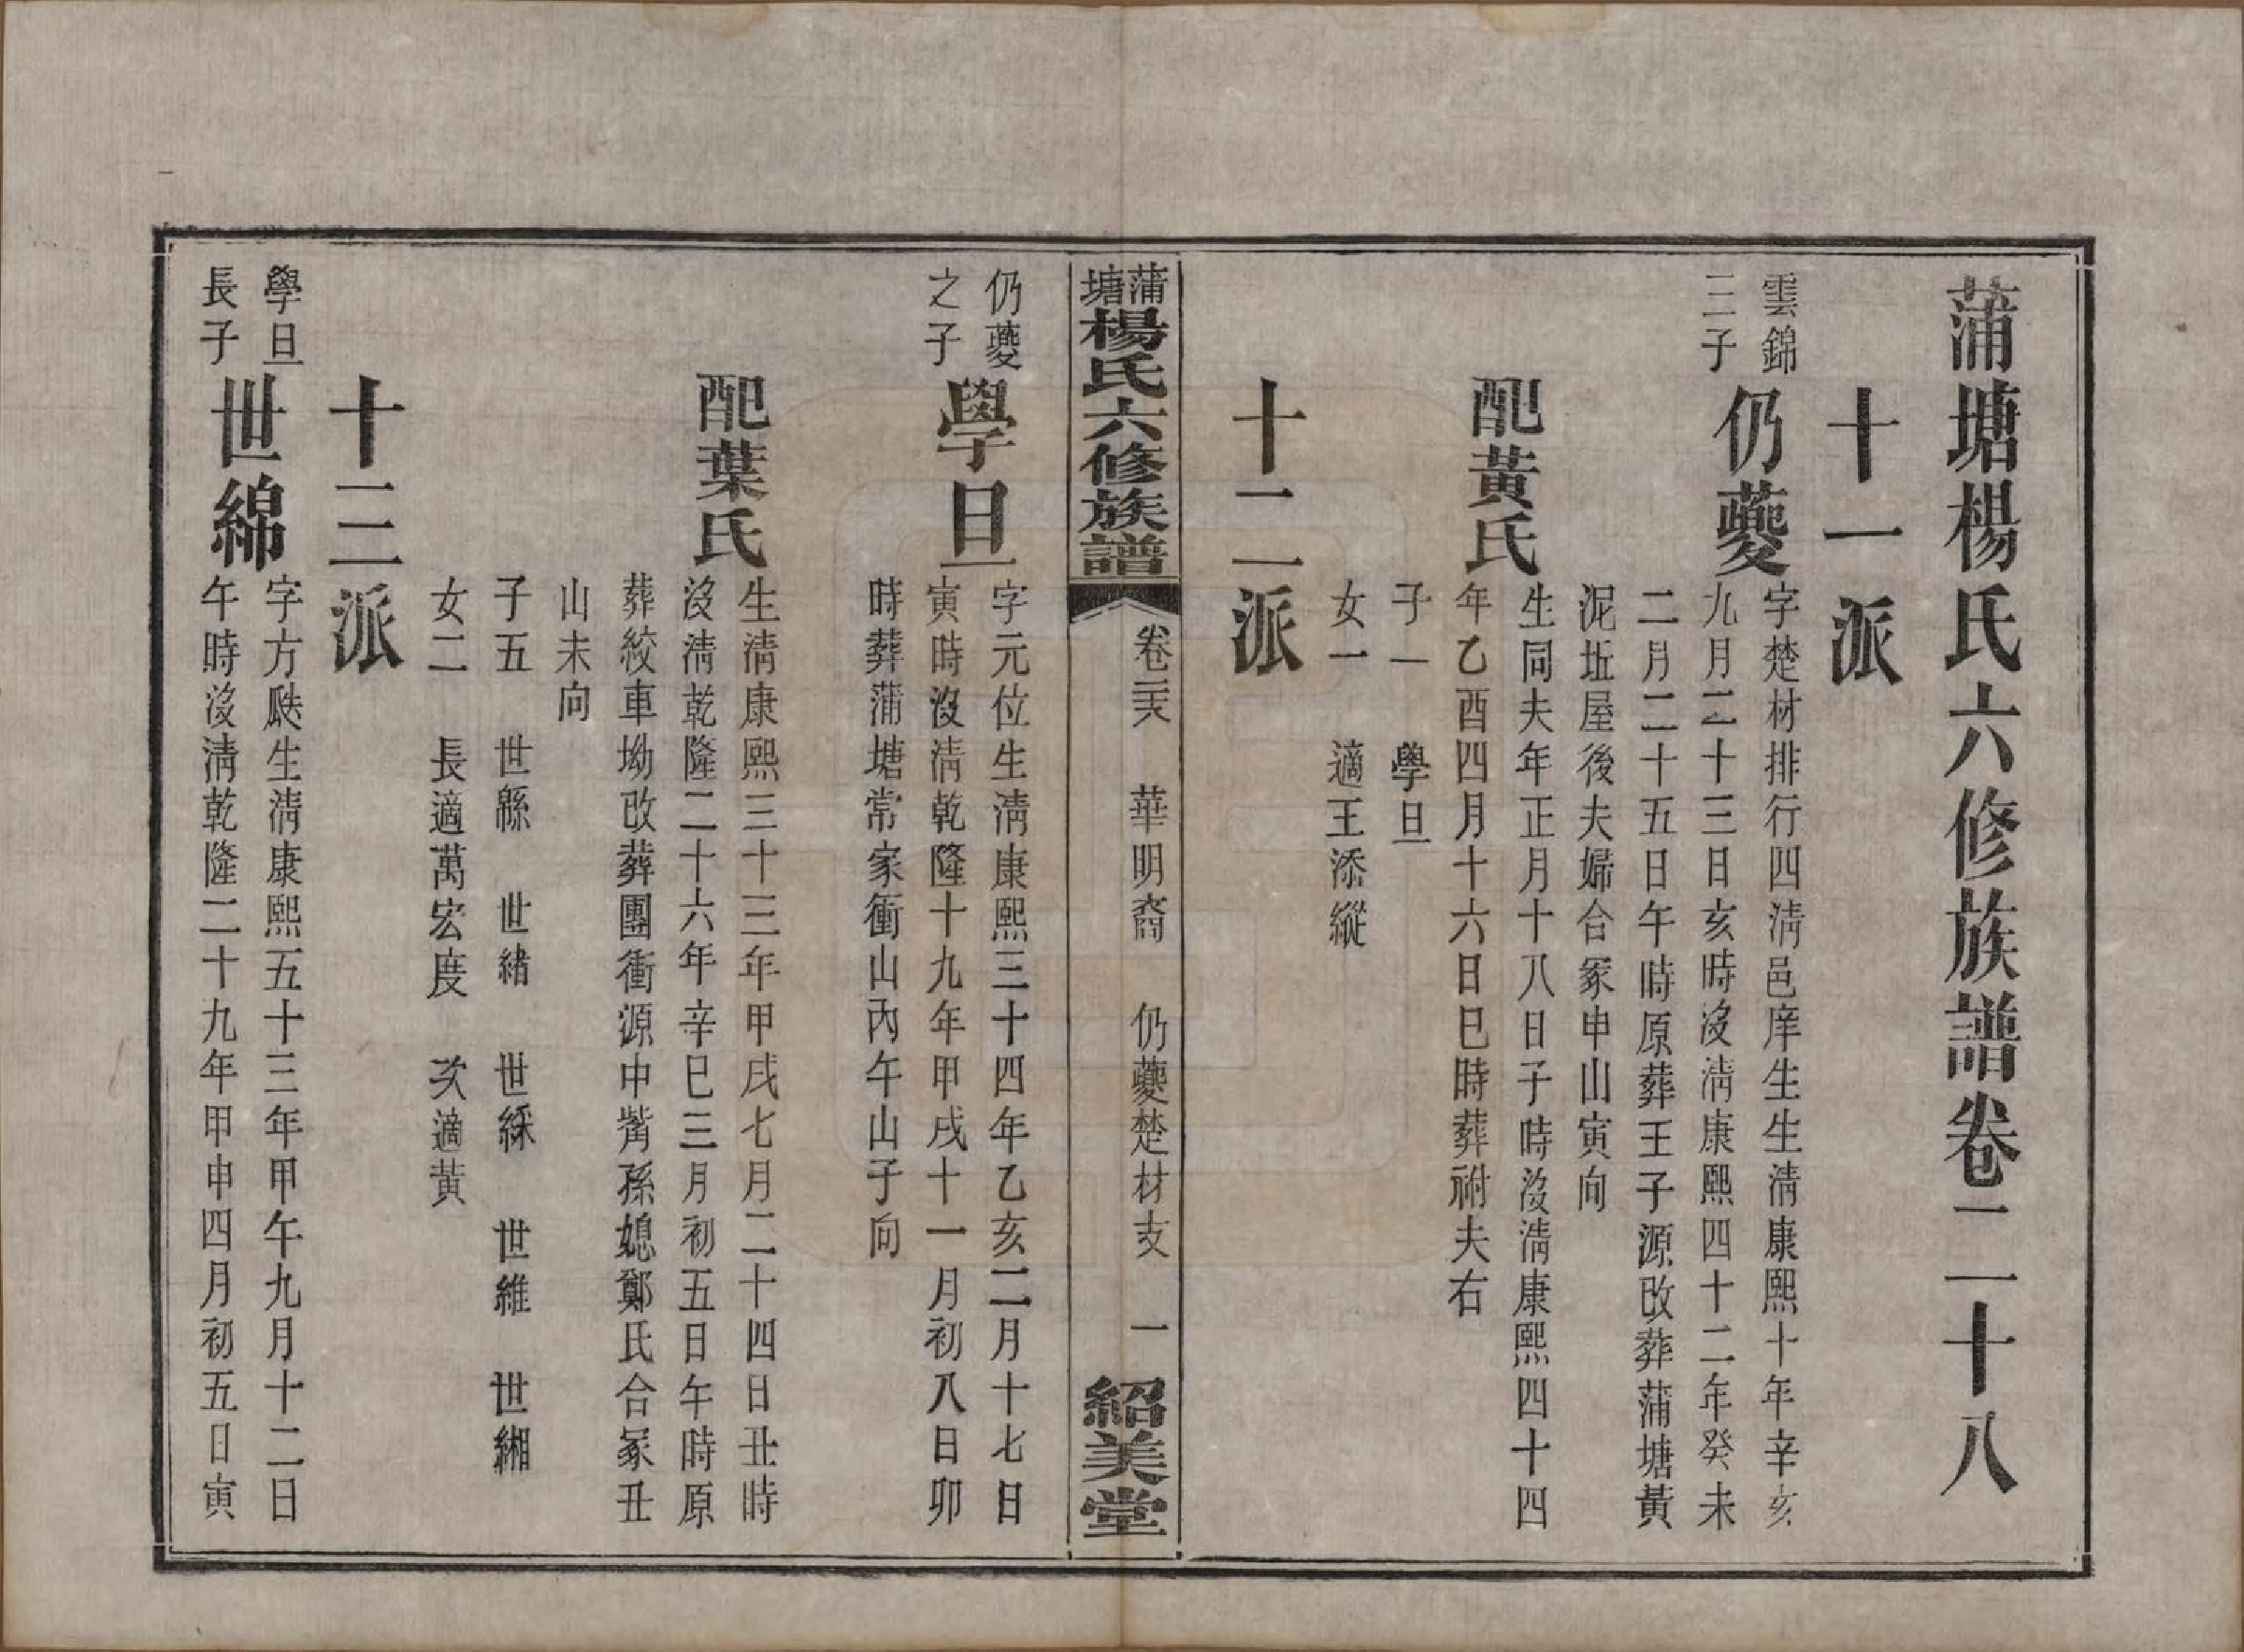 蒲塘楊氏六修族譜卷二十八
十一派
雲錦
三子
仍夔
字楚材排行四清邑庠生生清康熙十年辛亥
九月二十三日亥時沒清康熙四十二年癸未
二月二十五日午時原葬王子源改葬蒲塘黃
泥坵屋後夫婦合冢申山寅向
配黃氏
生同夫年正月十八日子時沒清康熙四十四
年乙酉四月十六日巳時葬祔夫右
子一 學旦
女一 適王添縱
十二派
蒲塘楊氏六修族譜 卷二十八 華明裔 仍夔楚材支 一 紹美堂
仍夔
之子
學旦
字元位生清康熙三十四年乙亥二月十七日
寅時沒清乾隆十九年甲戌十一月初八日卯
時葬蒲塘常家衝山內午山子向
配葉氏
生清康熙三十三年甲戌七月二十四日丑時
沒清乾隆二十六年辛巳三月初五日午時原
葬絞車坳改葬團衝源中觜孫媳鄭氏合冢丑
山未向
子五 世緜 世緒 世綵 世維 世緗
女二 長適萬宏度 次適黃
十三派
學旦
長子
世綿
字方瓞生清康熙五十三年甲午九月十二日
午時沒清乾隆二十九年甲申四月初五日寅